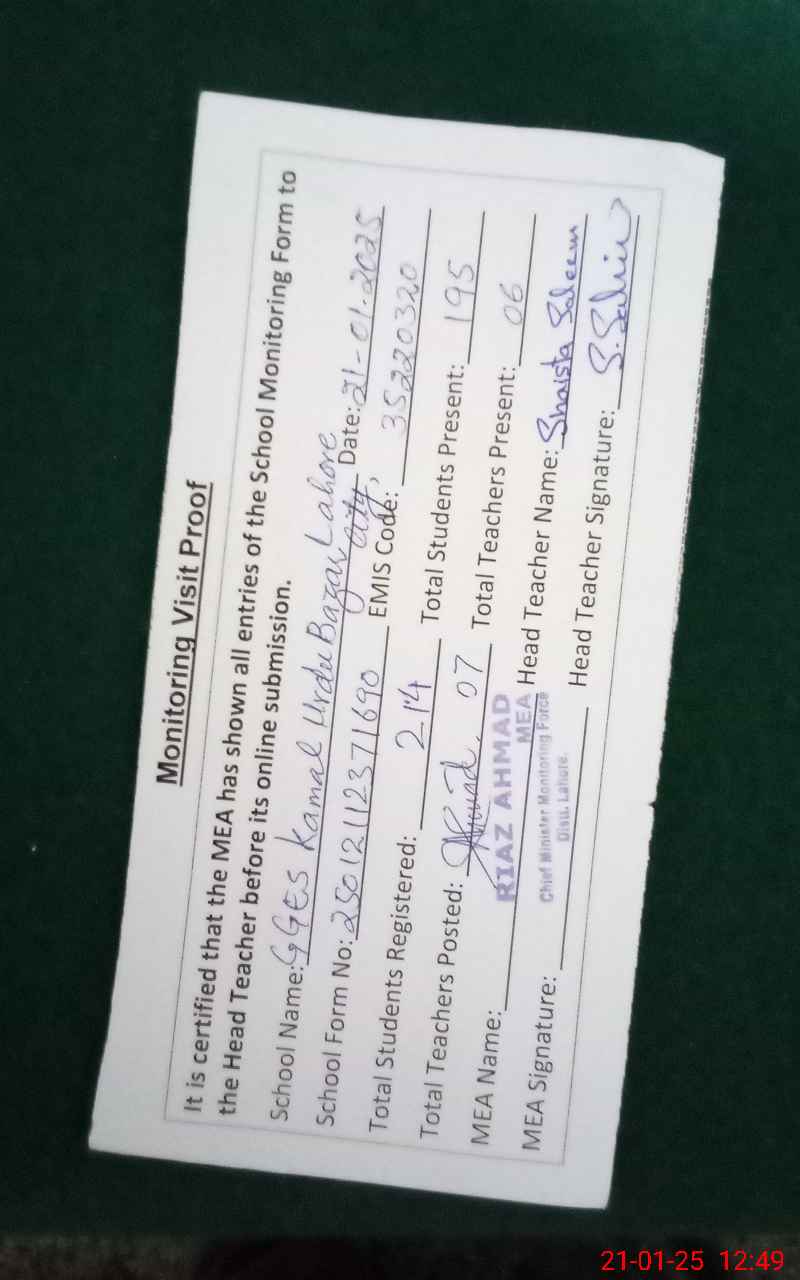 Monitoring Visit Proof
It is certified that the MEA has shown all entries of the School Monitoring Form to
the Head Teacher before its online submission.
School Name: GGES Kamal Urdu Bazar Lahore
city, Date: 21-01-2025
School Form No: 25012112371690 EMIS Code: 35220320
Total Students Registered: 214 Total Students Present: 195
Total Teachers Posted: 07 Total Teachers Present: 06
MEA Name: RIAZ AHMAD Head Teacher Name: Shaista Saleem
MEA
Chief Minister Monitoring Force
Distt. Lahore.
MEA Signature: Head Teacher Signature:
21-01-25 12:49